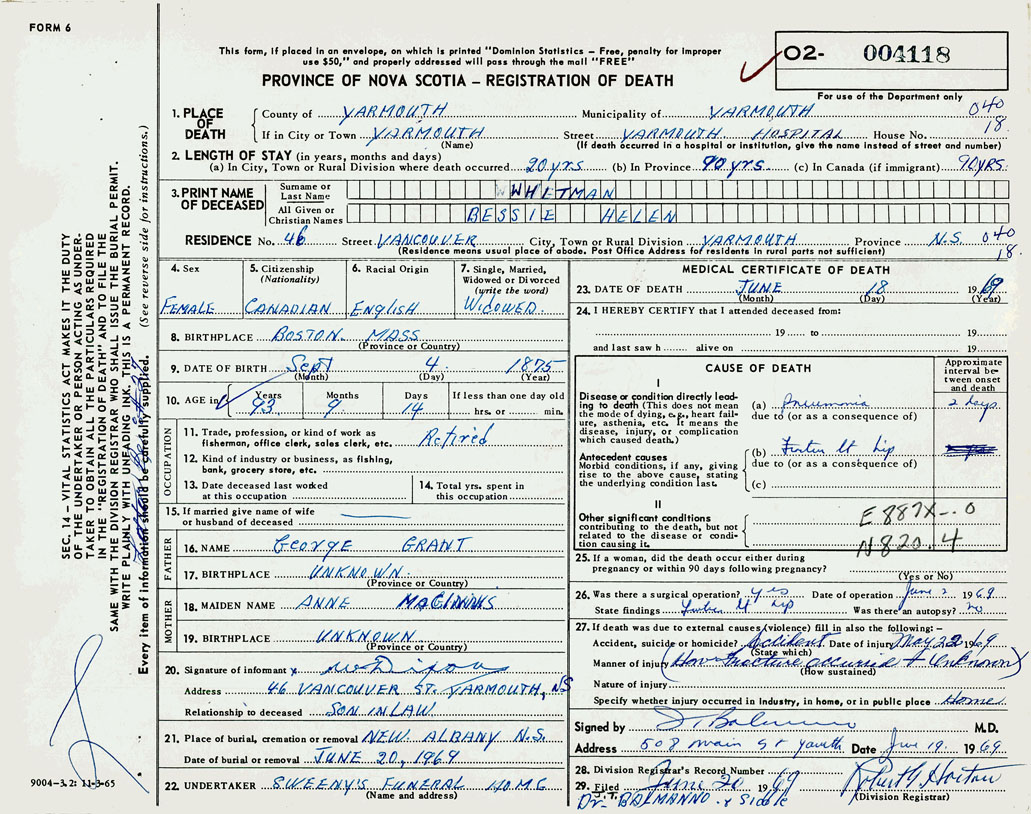 FORM 6
This form, if placed in an envelope, on which is printed "Dominion Statistics – Free, penalty for improper
use $50," and properly addressed will pass through the mail "FREE"
PROVINCE OF NOVA SCOTIA – REGISTRATION OF DEATH
O2- 004118
For use of the Department only
1. PLACE OF DEATH
County of YARMOUTH Municipality of YARMOUTH 040
If in City or Town YARMOUTH Street YARMOUTH HOSPITAL House No. 18
(Name) (If death occurred in a hospital or institution, give the name instead of street and number)
2. LENGTH OF STAY (in years, months and days)
(a) In City, Town or Rural Division where death occurred 20 yrs (b) In Province 90 yrs. (c) In Canada (if immigrant) 90 YRS.
3. PRINT NAME OF DECEASED
Surname or Last Name WHITMAN
All Given or Christian Names BESSIE HELEN
RESIDENCE No. 46 Street VANCOUVER City, Town or Rural Division YARMOUTH Province N.S. 040
(Residence means usual place of abode. Post Office Address for residents in rural parts not sufficient) 18
4. Sex FEMALE
5. Citizenship (Nationality) CANADIAN
6. Racial Origin ENGLISH
7. Single, Married, Widowed or Divorced (write the word) WIDOWED
8. BIRTHPLACE BOSTON MASS
(Province or Country)
9. DATE OF BIRTH Sept 4 1875
(Month) (Day) (Year)
10. AGE in Years 93 Months 9 Days 14 If less than one day old hrs. or min.
OCCUPATION
11. Trade, profession, or kind of work as fisherman, office clerk, sales clerk, etc. Retired
12. Kind of industry or business, as fishing, bank, grocery store, etc.
13. Date deceased last worked at this occupation
14. Total yrs. spent in this occupation
15. If married give name of wife or husband of deceased
FATHER
16. NAME George GRANT
17. BIRTHPLACE UNKNOWN
(Province or Country)
MOTHER
18. MAIDEN NAME ANNE
19. BIRTHPLACE UNKNOWN
(Province or Country)
20. Signature of informant x
Address 46 VANCOUVER ST. YARMOUTH, NS
Relationship to deceased SON IN LAW
21. Place of burial, cremation or removal NEW ALBANY N.S.
Date of burial or removal JUNE 20, 1969
22. UNDERTAKER SWEENY'S FUNERAL HOME
(Name and address)
MEDICAL CERTIFICATE OF DEATH
23. DATE OF DEATH JUNE 18 1969
(Month) (Day) (Year)
24. I HEREBY CERTIFY that I attended deceased from:
19 to 19
and last saw h alive on 19
CAUSE OF DEATH
Approximate interval between onset and death
I
Disease or condition directly leading to death (This does not mean the mode of dying, e.g., heart failure, asthenia, etc. It means the disease, injury, or complication which caused death.)
(a) Pneumonia 2 days
due to (or as a consequence of)
Antecedent causes
Morbid conditions, if any, giving rise to the above cause, stating the underlying condition last.
(b) lt hip
due to (or as a consequence of)
(c)
II
Other significant conditions contributing to the death, but not related to the disease or condition causing it.
E 887X-.0
N820.4
25. If a woman, did the death occur either during pregnancy or within 90 days following pregnancy?
(Yes or No)
26. Was there a surgical operation? yes Date of operation June 2 1969
State findings lt hip Was there an autopsy? no
27. If death was due to external causes (violence) fill in also the following:–
Accident, suicide or homicide? Accident Date of injury May 22 1969
(State which)
Manner of injury (How fracture occurred + Unknown)
(How sustained)
Nature of injury
Specify whether injury occurred in industry, in home, or in public place Home
Signed by M.D.
Address 508 main St Date June 19. 1969
28. Division Registrar's Record Number
29. Filed June 20 1969
(Division Registrar)
Dr. J.T. BALMANNO
SEC. 14 – VITAL STATISTICS ACT MAKES IT THE DUTY
OF THE UNDERTAKER OR PERSON ACTING AS UNDER-
TAKER TO OBTAIN ALL THE PARTICULARS REQUIRED
IN THE "REGISTRATION OF DEATH" AND TO FILE THE
SAME WITH THE DIVISION REGISTRAR WHO SHALL ISSUE THE BURIAL PERMIT.
WRITE PLAINLY WITH UNFADING INK. THIS IS A PERMANENT RECORD.
Every item of information should be carefully supplied. (See reverse side for instructions.)
9004–3.2: 11-3-65